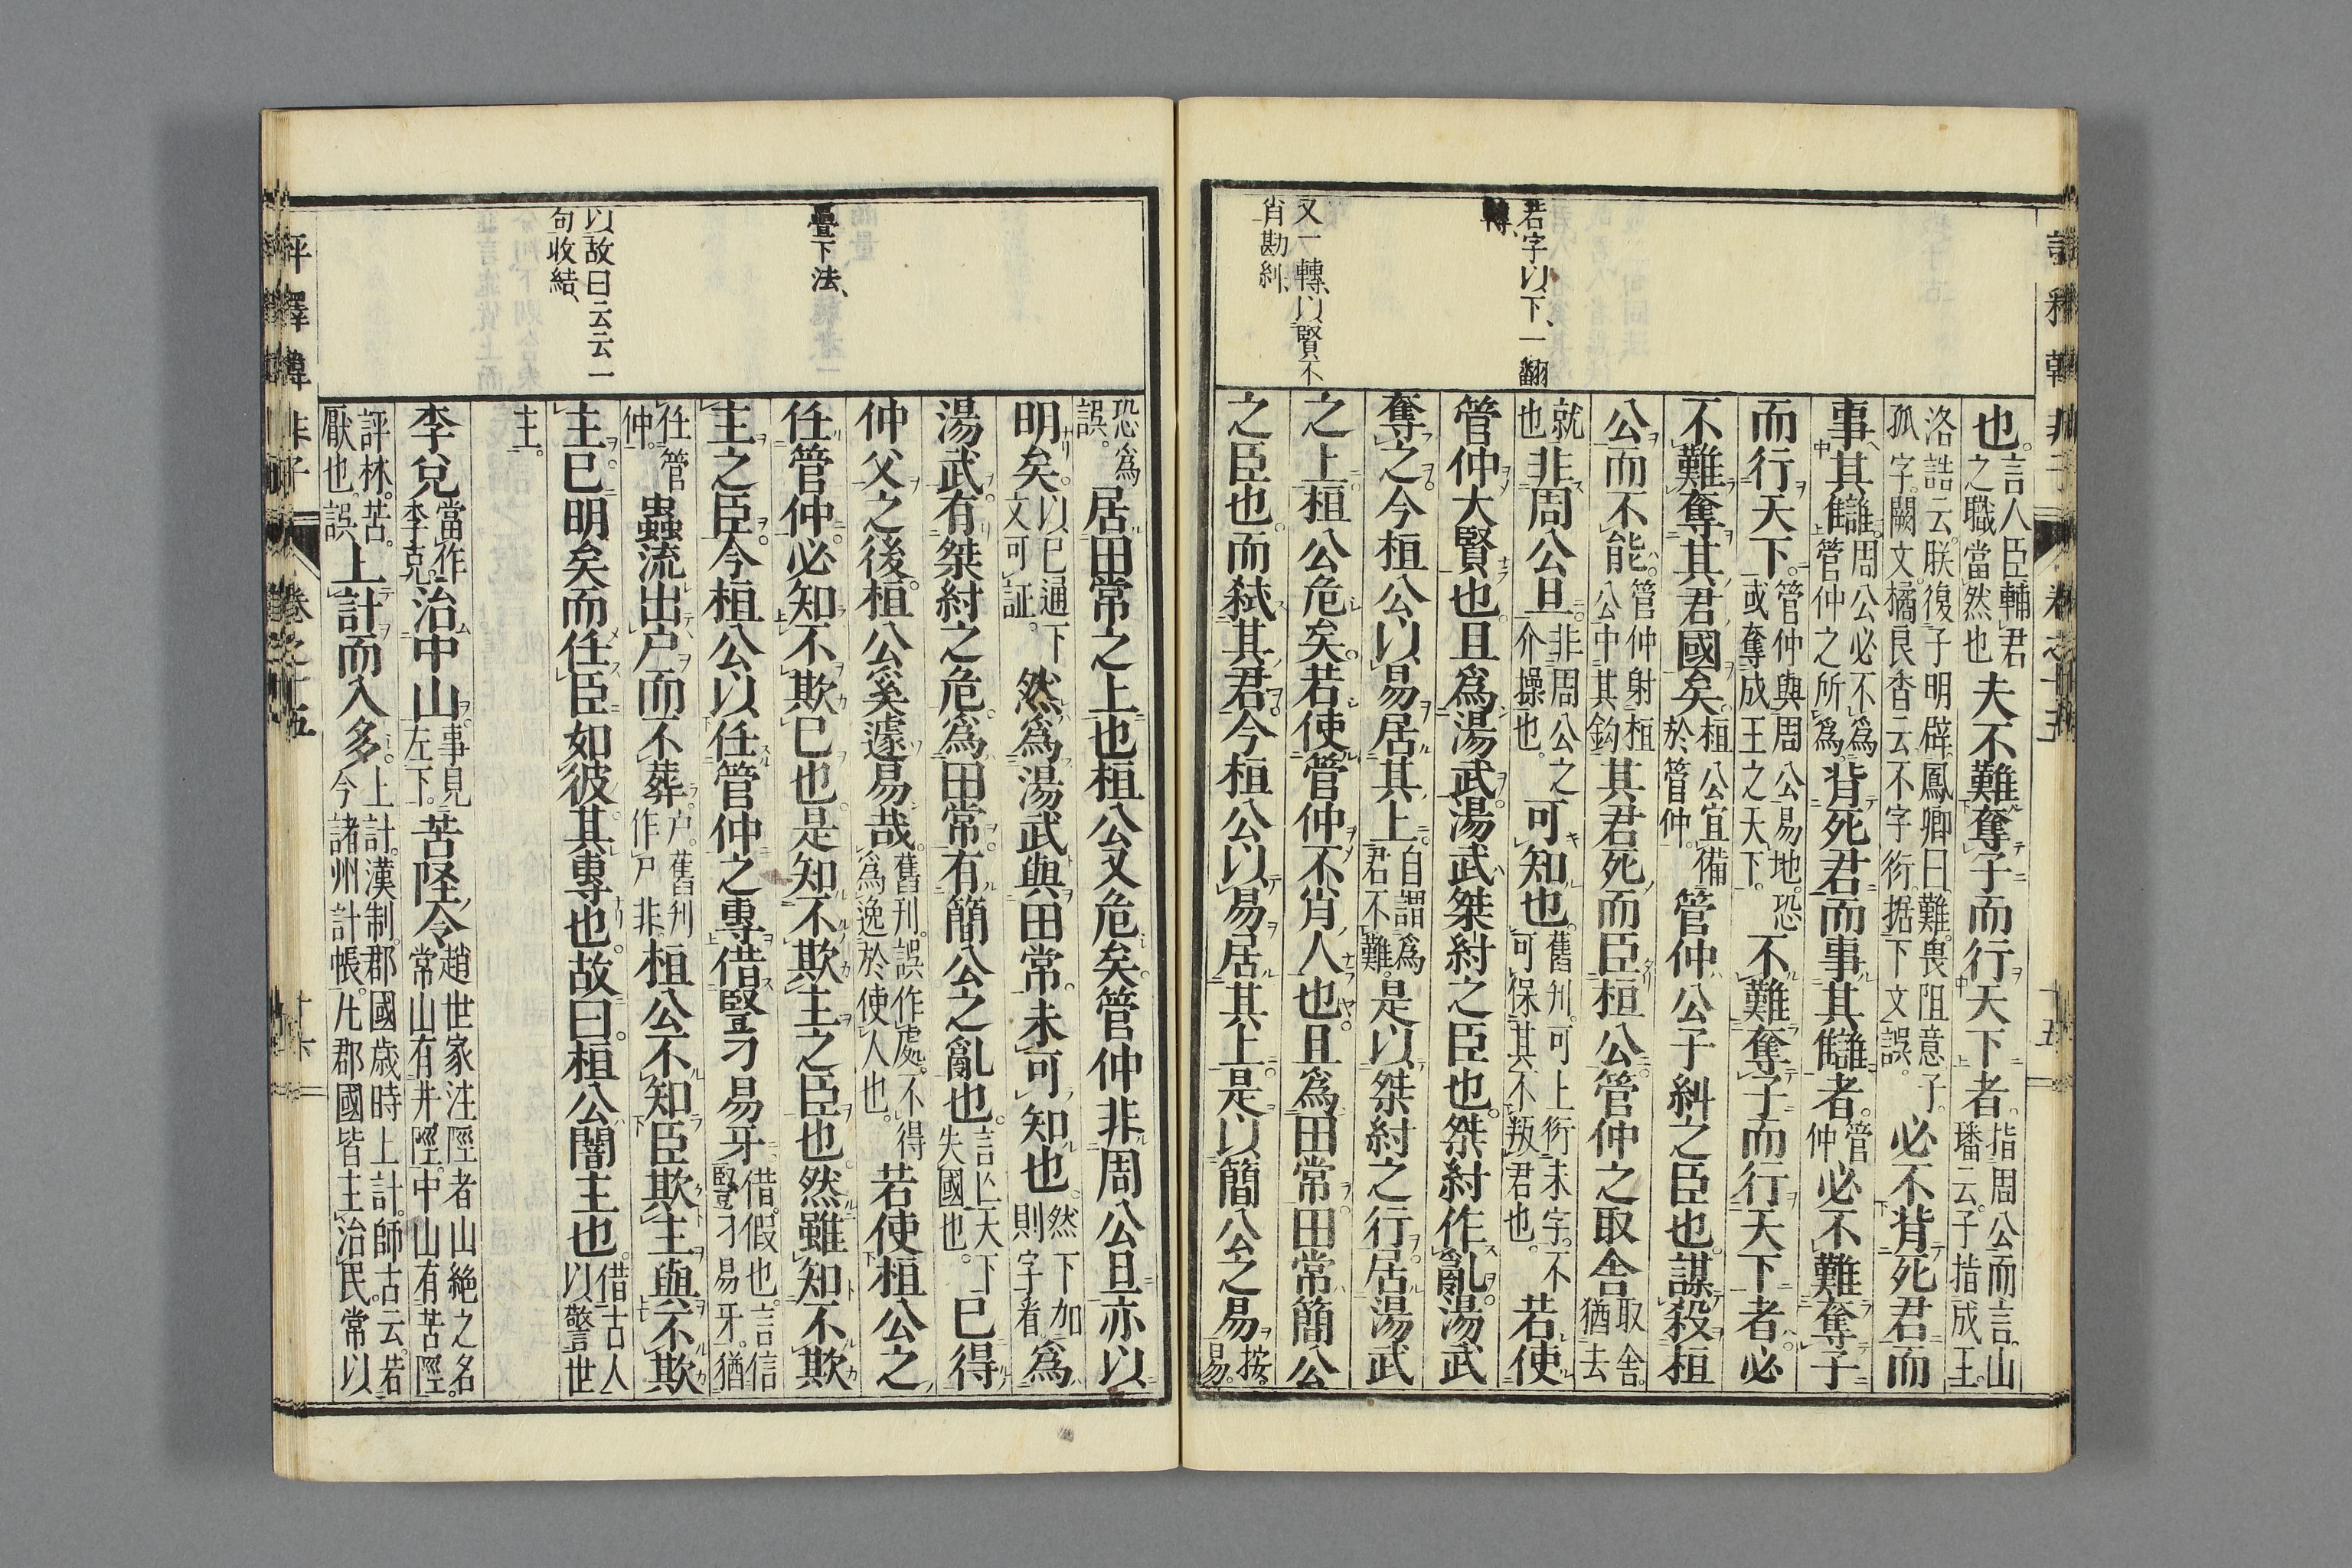 也。言人臣輔君之職當然也夫不難奪子而行天下者。指周公而言。山璠云。子指成王。
洛誥云。朕復子明辟。鳳卿曰。難。畏阻意。子。孤字。闕文。橘良杳云。不字衍。据下文誤。必不背死君而
事其讎。周公必不爲管仲之所爲。背死君而事其讎者。管仲必不難奪子
而行天下。管仲與周公易地。恐或奪成王之天下。不難奪子而行天下者。必
不難奪其君國矣。桓公宜備於管仲。管仲公子糾之臣也。謀殺桓
公而不能。管仲射桓公中其鈎其君死而臣桓公。管仲之取舍取舍。猶去
就也非周公旦。非周公之介操也。可知也。舊刋。可上衍未字。不可保其不叛君也。若使
管仲大賢也。且爲湯武。湯武桀紂之臣也。桀紂作亂。湯武
奪之。今桓公以易居其上。自謂爲君不難。是以桀紂之行。居湯武
之上。桓公危矣。若使管仲不肖人也。且爲田常。田常簡公
之臣也。而弑其君。今桓公以易居其上。是以簡公之易按。易。
若字以下、一翻
轉、
又一轉、以賢不
肖勘糾、
評釋韓非子 卷之十五 十五
恐爲誤。居田常之上也。桓公又危矣。管仲非周公旦亦以
明矣。以已通。下文可証。然爲湯武與田常。未可知也。然下加則字看爲
湯武。有桀紂之危。爲田常。有簡公之亂也。言亾天下失國也。已得
仲父之後。桓公奚遽易哉。舊刋。誤作處。不得爲逸於使人也。若使桓公之
任管仲。必知不欺已也。是知不欺主之臣也。然雖知不欺
主之臣。今桓公以任管仲之專。借豎刁易牙。借。假也。言信豎刁易牙。猶
任管仲。蟲流出户而不葬。户。舊刋作尸非。桓公不知臣欺主與不欺
主已明矣。而任臣如彼其專也。故曰。桓公闇主也。借古人以警世
主。
李兌當作李克。治中山。事見左下。苦陘令趙世家注。陘者山絶之名。常山有井陘。中山有苦陘。
評林。苦。厭也。誤上計而入多。上計。漢制。郡國歳時上計。師古云。若今諸州計帳。凢郡國皆主治民。常以
疊下法、
以故曰云云一
句收結、
評釋韓非子 卷之十五 十六